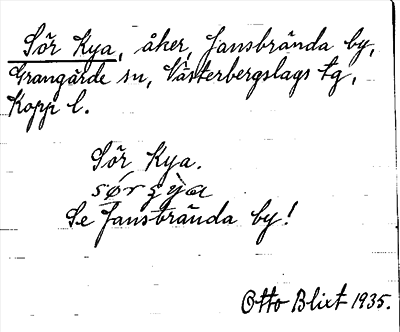 Sör Kya, åker, Jansbrända by,
Grangärde sn, Västerbergslags tg,
Kopp l.
Sör Kya.
Se Jansbrända by!
Otto Blixt 1935.